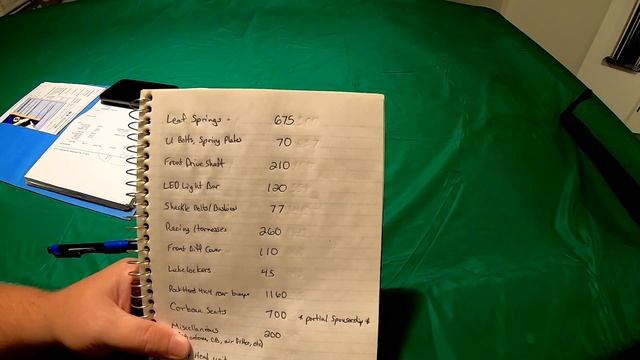 Leaf Springs - 675
U Bolts, Spring Plates 70
Front Driveshaft 210
LED Light Bar 120
Shackle Bolts/ 77
Racing Harnesses 260
Front Diff Cover 110
Lubelockers 45
RockHard 4x4 rear bumper 1160
Corbeau Seats 700 * partial Sponsorship *
Miscellaneous 200
CB, air filter, etc)
Head unit